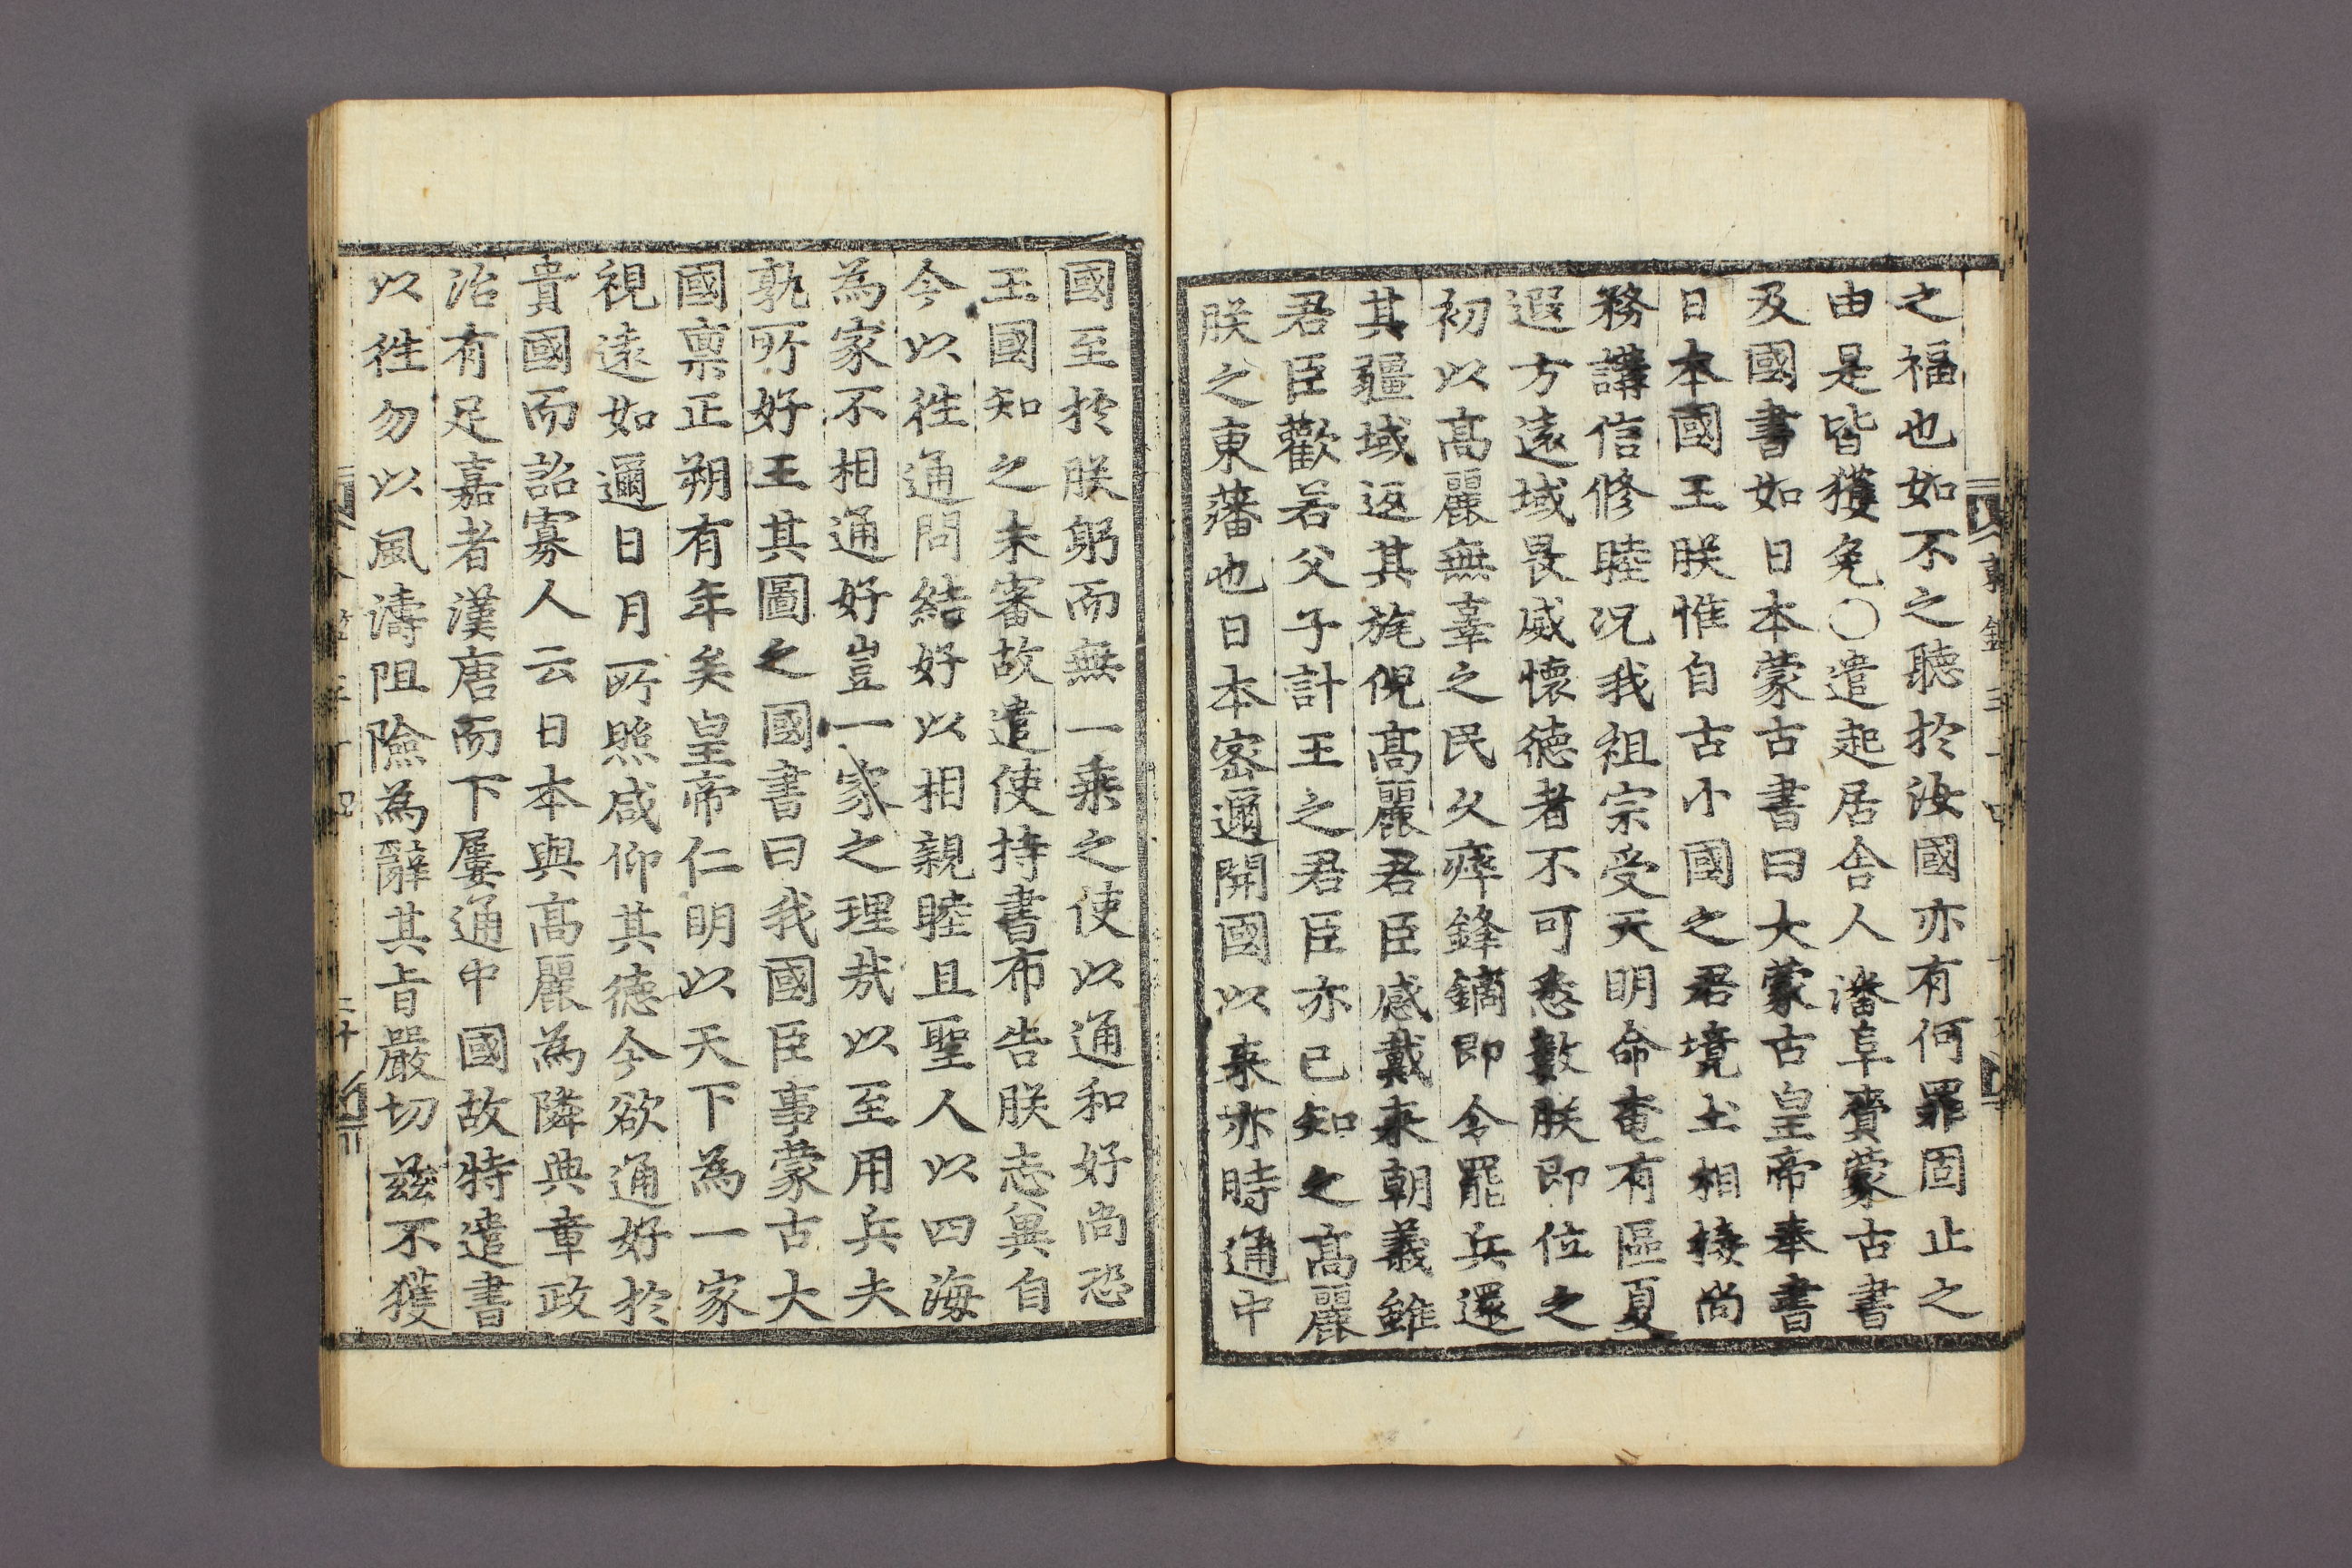 之福也如不之聽於汝國亦有何罪固止之
由是皆獲免〇遣起居舍人潘阜賫蒙古書
及國書如日本蒙古書曰大蒙古皇帝奉書
日本國王朕惟自古小國之君境土相接尚
務講信修睦况我祖宗受天明命奄有區夏
遐方遠域畏威懷德者不可悉數朕即位之
初以高麗無辜之民久瘁鋒鏑即令罷兵還
其疆域返其旄倪高麗君臣感戴來朝義雖
君臣歡若父子計王之君臣亦已知之高麗
朕之東藩也日本密邇開國以来亦時通中
國至於朕躬而無一乘之使以通和好尚恐
王國知之未審故遣使持書布告朕志兾自
今以徃通問結好以相親睦且聖人以四海
為家不相通好豈一家之理㢤以至用兵夫
孰所好王其圖之國書曰我國臣事蒙古大
國禀正朔有年矣皇帝仁明以天下為一家
視遠如邇日月所照咸仰其德今欲通好於
貴國而詔寡人云日本與高麗為隣典章政
治有足嘉者漢唐而下屢通中國故特遣書
以徃勿以風濤阻險為辭其旨嚴切茲不獲